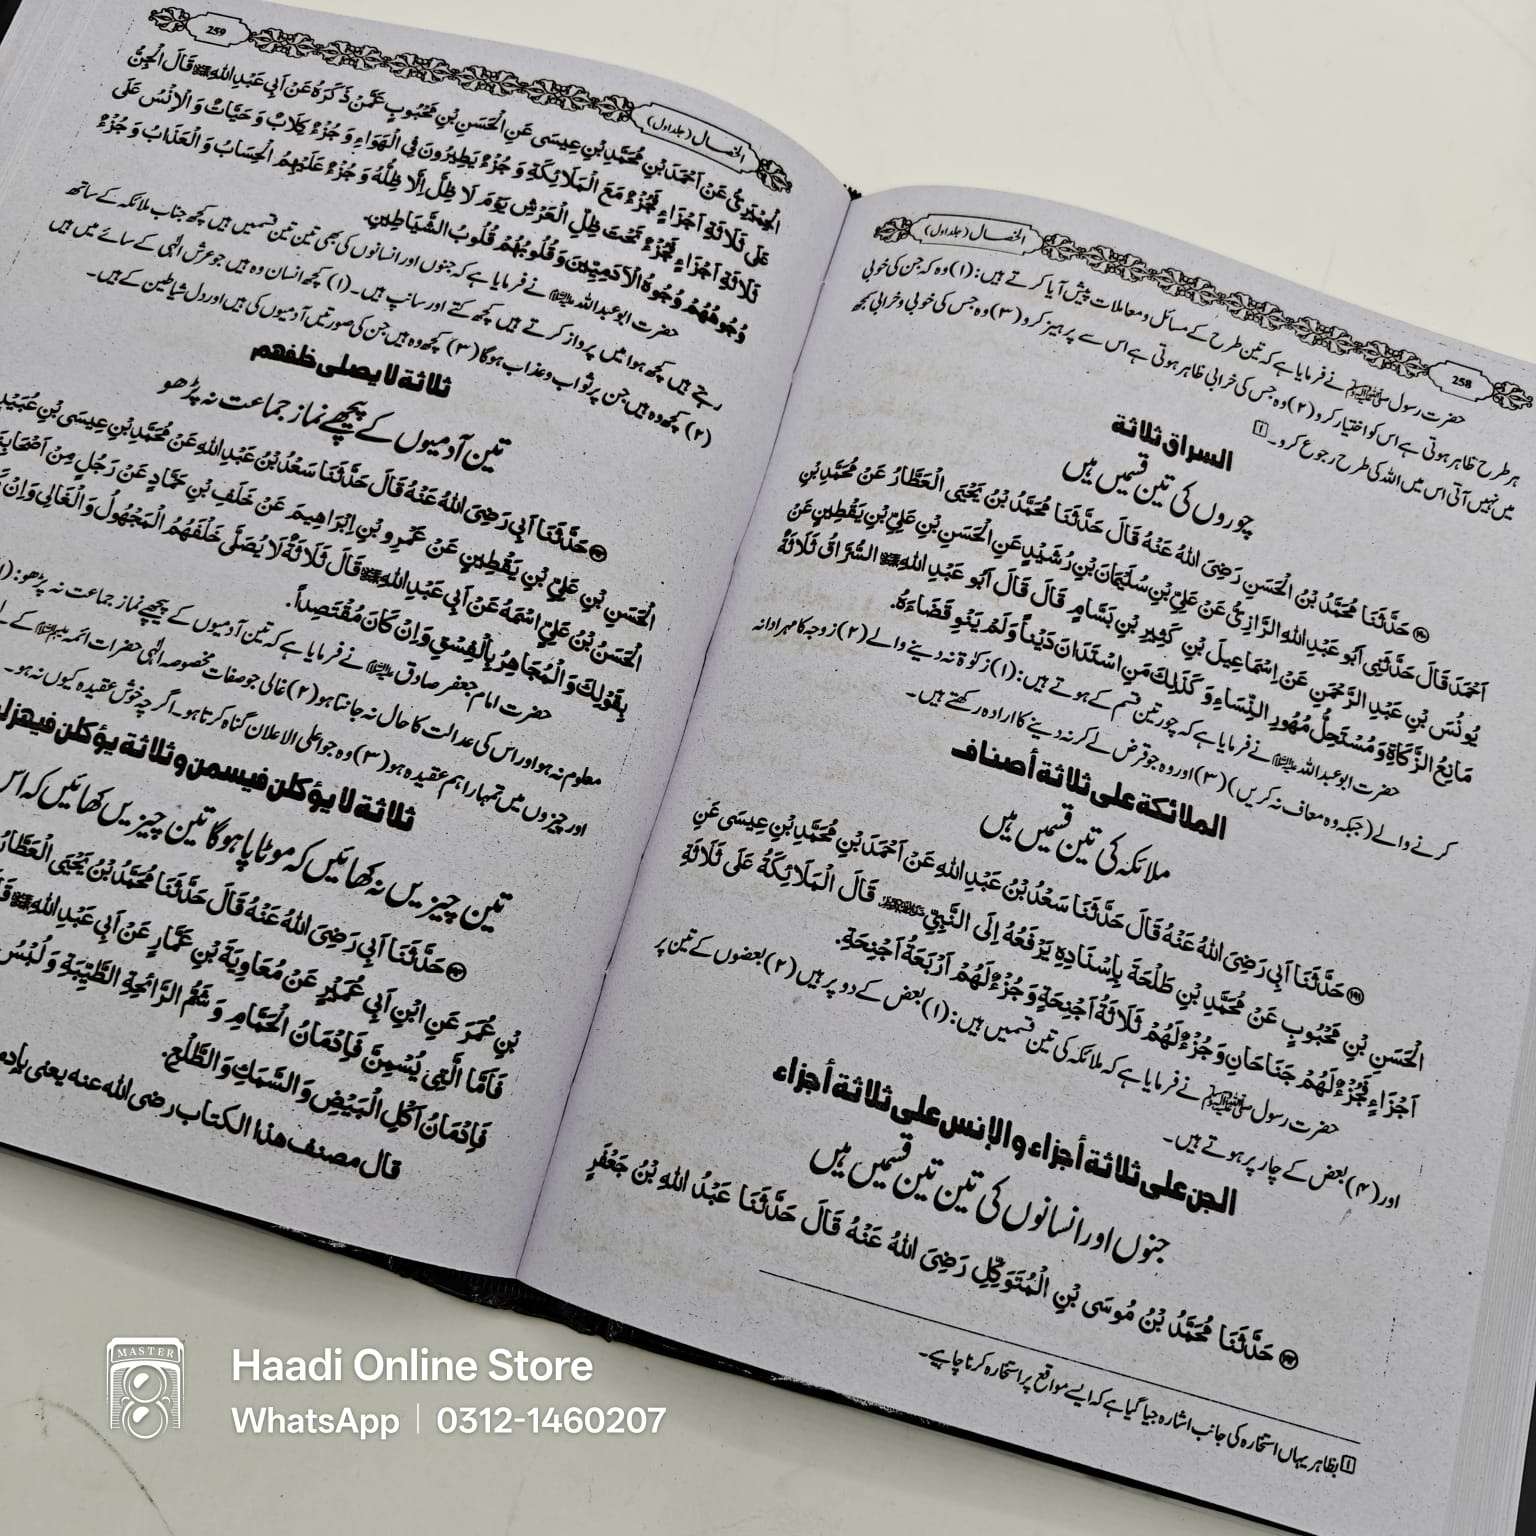 258
الخصال (جلد اول)
حضرت رسول ﷺ نے فرمایا ہے کہ تین طرح کے مسائل و معاملات پیش آیا کرتے ہیں: (۱) وہ کہ جن کی خوبی
ہر طرح ظاہر ہوتی ہے اس کو اختیار کرو (۲) وہ جس کی خرابی ظاہر ہوتی ہے اس سے پرہیز کرو (۳) وہ جس کی خوبی و خرابی سمجھ
میں نہیں آتی اس میں اللہ کی طرح رجوع کرو۔
السراق ثلاثة
چوروں کی تین قسمیں ہیں
حَدَّثَنَا مُحَمَّدُ بْنُ الْحَسَنِ رَضِيَ اللهُ عَنْهُ قَالَ حَدَّثَنَا مُحَمَّدُ بْنُ يَحْيَى الْعَطَّارُ عَنْ مُحَمَّدِ بْنِ
أَحْمَدَ قَالَ حَدَّثَنِي أَبُو عَبْدِ اللهِ الرَّازِيُّ عَنْ عَلِيِّ بْنِ سُلَيْمَانَ بْنِ رُشَيْدٍ عَنِ الْحَسَنِ بْنِ عَلِيِّ بْنِ يَقْطِينٍ عَنْ
يُونُسَ بْنِ عَبْدِ الرَّحْمَنِ عَنْ إِسْمَاعِيلَ بْنِ كَثِيرِ بْنِ بَسَّامٍ قَالَ قَالَ أَبُو عَبْدِ اللهِ السُّرَّاقُ ثَلَاثَةٌ
مَانِعُ الزَّكَاةِ وَ مُسْتَحِلُّ مُهُورِ النِّسَاءِ وَ كَذَلِكَ مَنِ اسْتَدَانَ دَيْناً وَ لَمْ يَنْوِ قَضَاءَهُ.
حضرت ابو عبد اللہ نے فرمایا ہے کہ چور تین قسم کے ہوتے ہیں: (۱) زکوٰۃ نہ دینے والے (۲) زوجہ کا مہر ادا نہ
کرنے والے (جبکہ وہ معاف نہ کریں) (۳) اور وہ جو قرض لے کر نہ دینے کا ارادہ رکھتے ہیں۔
الملائكة على ثلاثة أصناف
ملائکہ کی تین قسمیں ہیں
حَدَّثَنَا أَبِي رَضِيَ اللهُ عَنْهُ قَالَ حَدَّثَنَا سَعْدُ بْنُ عَبْدِ اللهِ عَنْ أَحْمَدَ بْنِ مُحَمَّدِ بْنِ عِيسَى عَنِ
الْحَسَنِ بْنِ مَحْبُوبٍ عَنْ مُحَمَّدِ بْنِ طَلْحَةَ بِإِسْنَادِهِ يَرْفَعُهُ إِلَى النَّبِيِّ قَالَ الْمَلَائِكَةُ عَلَى ثَلَاثَةِ
أَجْزَاءٍ فَجُزْءٌ لَهُمْ جَنَاحَانِ وَ جُزْءٌ لَهُمْ ثَلَاثَةُ أَجْنِحَةٍ وَ جُزْءٌ لَهُمْ أَرْبَعَةُ أَجْنِحَةٍ.
حضرت رسول ﷺ نے فرمایا ہے کہ ملائکہ کی تین قسمیں ہیں: (۱) بعض کے دو پر ہیں (۲) بعضوں کے تین پر
اور (۳) بعض کے چار پر ہوتے ہیں۔
الجن على ثلاثة أجزاء والإنس على ثلاثة أجزاء
جنوں اور انسانوں کی تین تین قسمیں ہیں
حَدَّثَنَا مُحَمَّدُ بْنُ مُوسَى بْنِ الْمُتَوَكِّلِ رَضِيَ اللهُ عَنْهُ قَالَ حَدَّثَنَا عَبْدُ اللهِ بْنُ جَعْفَرٍ
بظاہر یہاں استخارہ کی جانب اشارہ کیا گیا ہے کہ ایسے مواقع پر استخارہ کرنا چاہیے۔
259
الخصال (جلد اول)
الْحِمْيَرِيُّ عَنْ أَحْمَدَ بْنِ مُحَمَّدِ بْنِ عِيسَى عَنِ الْحَسَنِ بْنِ مَحْبُوبٍ عَمَّنْ ذَكَرَهُ عَنْ أَبِي عَبْدِ اللهِ قَالَ الْجِنُّ
عَلَى ثَلَاثَةِ أَجْزَاءٍ فَجُزْءٌ مَعَ الْمَلَائِكَةِ وَ جُزْءٌ يَطِيرُونَ فِي الْهَوَاءِ وَ جُزْءٌ كِلَابٌ وَ حَيَّاتٌ وَ الْإِنْسُ عَلَى
ثَلَاثَةِ أَجْزَاءٍ فَجُزْءٌ تَحْتَ ظِلِّ الْعَرْشِ يَوْمَ لَا ظِلَّ إِلَّا ظِلُّهُ وَ جُزْءٌ عَلَيْهِمُ الْحِسَابُ وَ الْعَذَابُ وَ جُزْءٌ
وُجُوهُهُمْ وُجُوهُ الْآدَمِيِّينَ وَ قُلُوبُهُمْ قُلُوبُ الشَّيَاطِينِ.
حضرت ابو عبد اللہ نے فرمایا ہے کہ جنوں اور انسانوں کی بھی تین تین قسمیں ہیں کچھ جناب ملائکہ کے ساتھ
رہتے ہیں کچھ ہوا میں پرواز کرتے ہیں کچھ کتے اور سانپ ہیں۔ (۱) کچھ انسان وہ ہیں جو عرش الٰہی کے سائے میں ہیں
(۲) کچھ وہ ہیں جن پر ثواب و عذاب ہوگا (۳) کچھ وہ ہیں جن کی صورتیں آدمیوں کی ہیں اور دل شیاطین کے ہیں۔
ثلاثة لا يصلى خلفهم
تین آدمیوں کے پیچھے نماز جماعت نہ پڑھو
حَدَّثَنَا أَبِي رَضِيَ اللهُ عَنْهُ قَالَ حَدَّثَنَا سَعْدُ بْنُ عَبْدِ اللهِ عَنْ مُحَمَّدِ بْنِ عِيسَى بْنِ عُبَيْدٍ
الْحَسَنِ بْنِ عَلِيِّ بْنِ يَقْطِينٍ عَنْ عَمْرِو بْنِ إِبْرَاهِيمَ عَنْ خَلَفِ بْنِ حَمَّادٍ عَنْ رَجُلٍ مِنْ أَصْحَابِنَا
الْحَسَنُ بْنُ عَلِيٍّ اسْمَهُ عَنْ أَبِي عَبْدِ اللهِ قَالَ ثَلَاثَةٌ لَا يُصَلَّى خَلْفَهُمُ الْمَجْهُولُ وَ الْغَالِي وَ إِنْ
بِقَوْلِكَ وَ الْمُجَاهِرُ بِالْفِسْقِ وَ إِنْ كَانَ مُقْتَصِداً.
حضرت امام جعفر صادق نے فرمایا ہے کہ تین آدمیوں کے پیچھے نماز جماعت نہ پڑھو: (۱)
معلوم نہ ہو اور اس کی عدالت کا حال نہ جانتا ہو (۲) غالی جو صفات مخصوصہ الٰہی حضرات ائمہ کے
اور چیزوں میں تمہارا ہم عقیدہ ہو (۳) وہ جو اعلی الاعلان گناہ کرتا ہو۔ اگر چہ خوش عقیدہ کیوں نہ ہو۔
ثلاثة لا يؤكلن فيسمن وثلاثة يؤكلن فيهزلن
تین چیزیں نہ کھائیں کہ موٹاپا ہوگا تین چیزیں کھائیں کہ اس
حَدَّثَنَا أَبِي رَضِيَ اللهُ عَنْهُ قَالَ حَدَّثَنَا مُحَمَّدُ بْنُ يَحْيَى الْعَطَّارُ
بْنِ عُمَرَ عَنِ ابْنِ أَبِي عُمَيْرٍ عَنْ مُعَاوِيَةَ بْنِ عَمَّارٍ عَنْ أَبِي عَبْدِ اللهِ
فَأَمَّا الَّتِي يُسْمِنَّ فَإِدْمَانُ الْحَمَّامِ وَ شَمُّ الرَّائِحَةِ الطَّيِّبَةِ وَ لُبْسُ
فَإِدْمَانُ أَكْلِ الْبَيْضِ وَ السَّمَكِ وَ الطَّلْعِ.
قال مصنف هذا الكتاب رضي الله عنه يعني بإدمان
MASTER
Haadi Online Store
WhatsApp | 0312-1460207